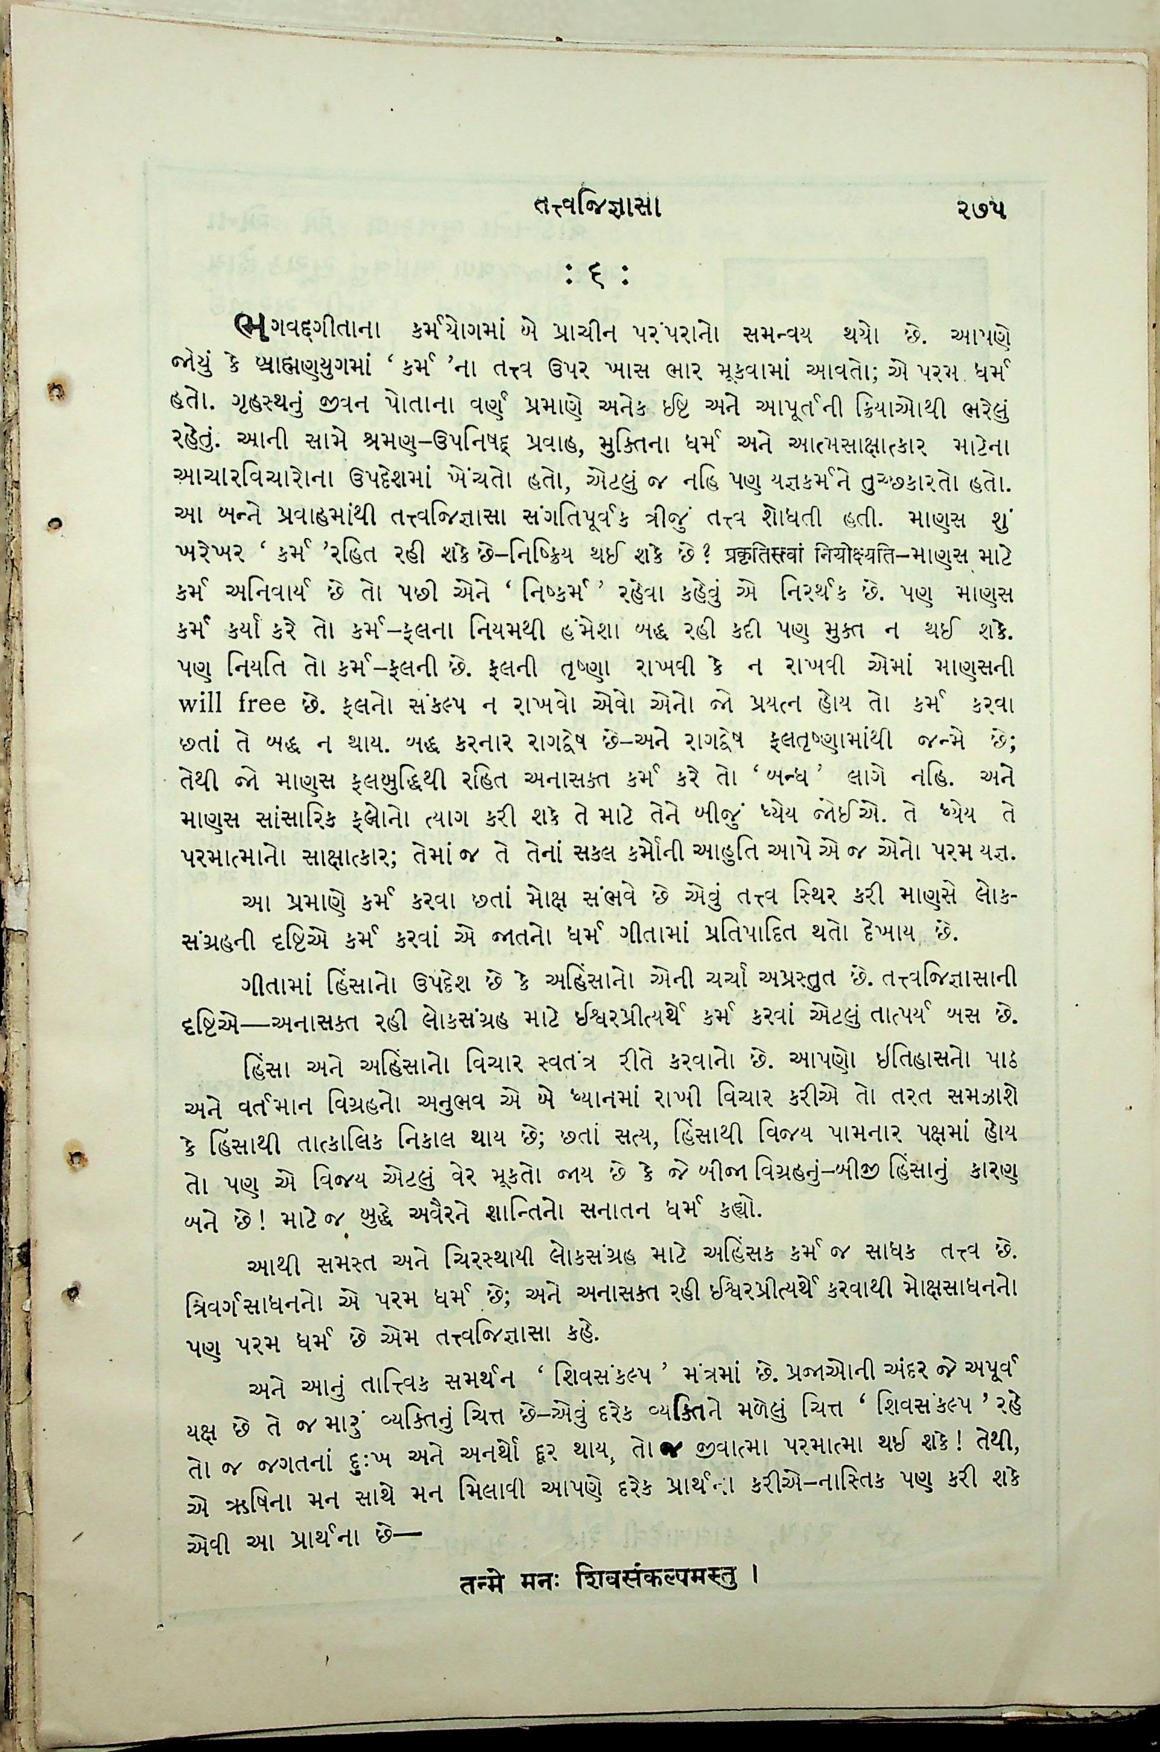 તત્ત્વજિજ્ઞાસા ૨૭૫
: ૬ :
ભગવદ્ગીતાના કર્મયોગમાં બે પ્રાચીન પરંપરાનો સમન્વય થયો છે. આપણે
જોયું કે બ્રાહ્મણયુગમાં ‘ કર્મ ’ના તત્ત્વ ઉપર ખાસ ભાર મૂકવામાં આવતો; એ પરમ ધર્મ
હતો. ગૃહસ્થનું જીવન પોતાના વર્ણ પ્રમાણે અનેક ઇષ્ટિ અને આપૂર્તની ક્રિયાઓથી ભરેલું
રહેતું. આની સામે શ્રમણ–ઉપનિષદ્ પ્રવાહ, મુક્તિના ધર્મ અને આત્મસાક્ષાત્કાર માટેના
આચારવિચારોના ઉપદેશમાં ખેંચતો હતો, એટલું જ નહિ પણ યજ્ઞકર્મને તુચ્છકારતો હતો.
આ બન્ને પ્રવાહમાંથી તત્ત્વજિજ્ઞાસા સંગતિપૂર્વક ત્રીજું તત્ત્વ શોધતી હતી. માણસ શું
ખરેખર ‘ કર્મ ’રહિત રહી શકે છે–નિષ્ક્રિય થઈ શકે છે? प्रकृतिस्त्वां नियोक्ष्यति–માણસ માટે
કર્મ અનિવાર્ય છે તો પછી એને ‘ નિષ્કર્મ ’ રહેવા કહેવું એ નિરર્થક છે. પણ માણસ
કર્મ કર્યાં કરે તો કર્મ–ફલના નિયમથી હંમેશા બદ્ધ રહી કદી પણ મુક્ત ન થઈ શકે.
પણ નિયતિ તો કર્મ–ફલની છે. ફલની તૃષ્ણા રાખવી કે ન રાખવી એમાં માણસની
will free છે. ફલનો સંકલ્પ ન રાખવો એવો એનો જો પ્રયત્ન હોય તો કર્મ કરવા
છતાં તે બદ્ધ ન થાય. બદ્ધ કરનાર રાગદ્વેષ છે–અને રાગદ્વેષ ફલતૃષ્ણામાંથી જન્મે છે;
તેથી જો માણસ ફલબુદ્ધિથી રહિત અનાસક્ત કર્મ કરે તો ‘ બન્ધ ’ લાગે નહિ. અને
માણસ સાંસારિક ફલોનો ત્યાગ કરી શકે તે માટે તેને બીજું ધ્યેય જોઈએ. તે ધ્યેય તે
પરમાત્માનો સાક્ષાત્કાર; તેમાં જ તે તેનાં સકલ કર્મોની આહુતિ આપે એ જ એનો પરમ યજ્ઞ.
આ પ્રમાણે કર્મ કરવા છતાં મોક્ષ સંભવે છે એવું તત્ત્વ સ્થિર કરી માણસે લોક-
સંગ્રહની દૃષ્ટિએ કર્મ કરવાં એ જાતનો ધર્મ ગીતામાં પ્રતિપાદિત થતો દેખાય છે.
ગીતામાં હિંસાનો ઉપદેશ છે કે અહિંસાનો એની ચર્ચા અપ્રસ્તુત છે. તત્ત્વજિજ્ઞાસાની
દૃષ્ટિએ—અનાસક્ત રહી લોકસંગ્રહ માટે ઈશ્વરપ્રીત્યર્થે કર્મ કરવાં એટલું તાત્પર્ય બસ છે.
હિંસા અને અહિંસાનો વિચાર સ્વતંત્ર રીતે કરવાનો છે. આપણો ઇતિહાસનો પાઠ
અને વર્તમાન વિગ્રહનો અનુભવ એ બે ધ્યાનમાં રાખી વિચાર કરીએ તો તરત સમઝાશે
કે હિંસાથી તાત્કાલિક નિકાલ થાય છે; છતાં સત્ય, હિંસાથી વિજય પામનાર પક્ષમાં હોય
તો પણ એ વિજય એટલું વેર મૂકતો જાય છે કે જે બીજા વિગ્રહનું–બીજી હિંસાનું કારણ
બને છે! માટે જ બુદ્ધે અવૈરને શાન્તિનો સનાતન ધર્મ કહ્યો.
આથી સમસ્ત અને ચિરસ્થાયી લોકસંગ્રહ માટે અહિંસક કર્મ જ સાધક તત્ત્વ છે.
ત્રિવર્ગસાધનનો એ પરમ ધર્મ છે; અને અનાસક્ત રહી ઈશ્વરપ્રીત્યર્થે કરવાથી મોક્ષસાધનનો
પણ પરમ ધર્મ છે એમ તત્ત્વજિજ્ઞાસા કહે.
અને આનું તાત્ત્વિક સમર્થન ‘ શિવસંકલ્પ ’ મંત્રમાં છે. પ્રજાઓની અંદર જે અપૂર્વ
યક્ષ છે તે જ મારું વ્યક્તિનું ચિત્ત છે–એવું દરેક વ્યક્તિને મળેલું ચિત્ત ‘ શિવસંકલ્પ ’ રહે
તો જ જગતનાં દુઃખ અને અનર્થો દૂર થાય, તો જ જીવાત્મા પરમાત્મા થઈ શકે! તેથી,
એ ઋષિના મન સાથે મન મિલાવી આપણે દરેક પ્રાર્થના કરીએ–નાસ્તિક પણ કરી શકે
એવી આ પ્રાર્થના છે—
तन्मे मनः शिवसंकल्पमस्तु ।